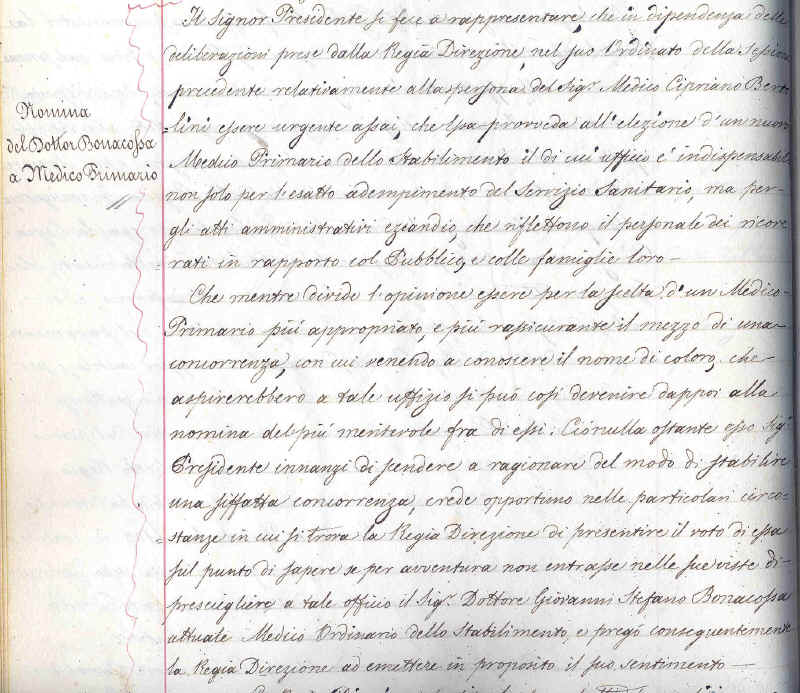 Nomina
del Dottor Bonacossa
a Medico Primario
Il Signor Presidente si fece a rappresentare, che in dipendenza delle
deliberazioni prese dalla Regia Direzione, nel suo Ordinato della Sessione
precedente relativamente alla persona del Sig.r Medico Cipriano Berto
=lini essere urgente assai, che Essa provveda all'elezione d'un nuovo
Medico Primario dello Stabilimento il di cui ufficio è indispensabile
non solo per l'esatto adempimento del Servizio Sanitario, ma per
gli atti amministrativi eziandio, che riflettono il personale dei ricove
=rati in rapporto col Pubblico, e colle famiglie loro —
Che mentre divide l'opinione essere per la scelta d'un Medico
Primario più appropriato, e più rassicurante il mezzo di una
concorrenza, con cui venendo a conoscere il nome di coloro, che
aspirerebbero a tale uffizio si può così devenire dappoi alla
nomina del più meritevole fra di essi. Ciò nulla ostante esso Sig.r
Presidente innanzi di scendere a ragionare del modo di stabilire
una siffatta concorrenza, crede opportuno nelle particolari circo
=stanze in cui si trova la Regia Direzione di presentire il voto di essa
sul punto di sapere se per avventura non entrasse nelle sue viste di
prescegliere a tale officio il Sig.r Dottore Giovanni Stefano Bonacossa
attuale Medico Ordinario dello Stabilimento, e pregò conseguentemente
la Regia Direzione ad emettere in proposito il suo sentimento —